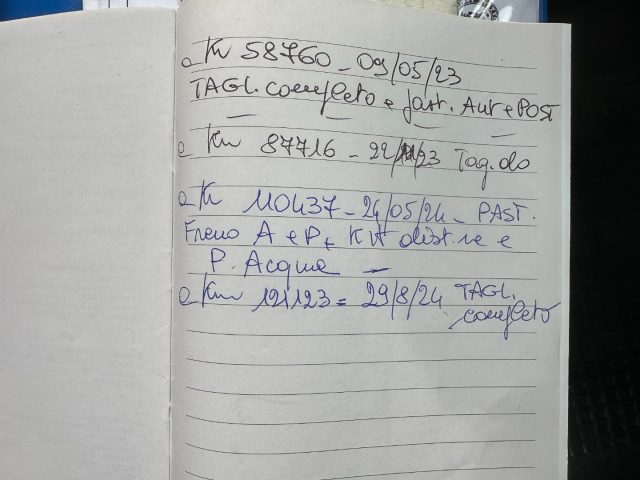 Km 58760 - 09/05/23
TAGL. completo e past. Ant e POST
Km 87716 - 22/11/23 Tag.do
Km 110437 - 24/05/24 - PAST.
Freno A e P + Kit distr.ne e
P. Acqua -
Km 121123 = 29/8/24 TAGL.
completo